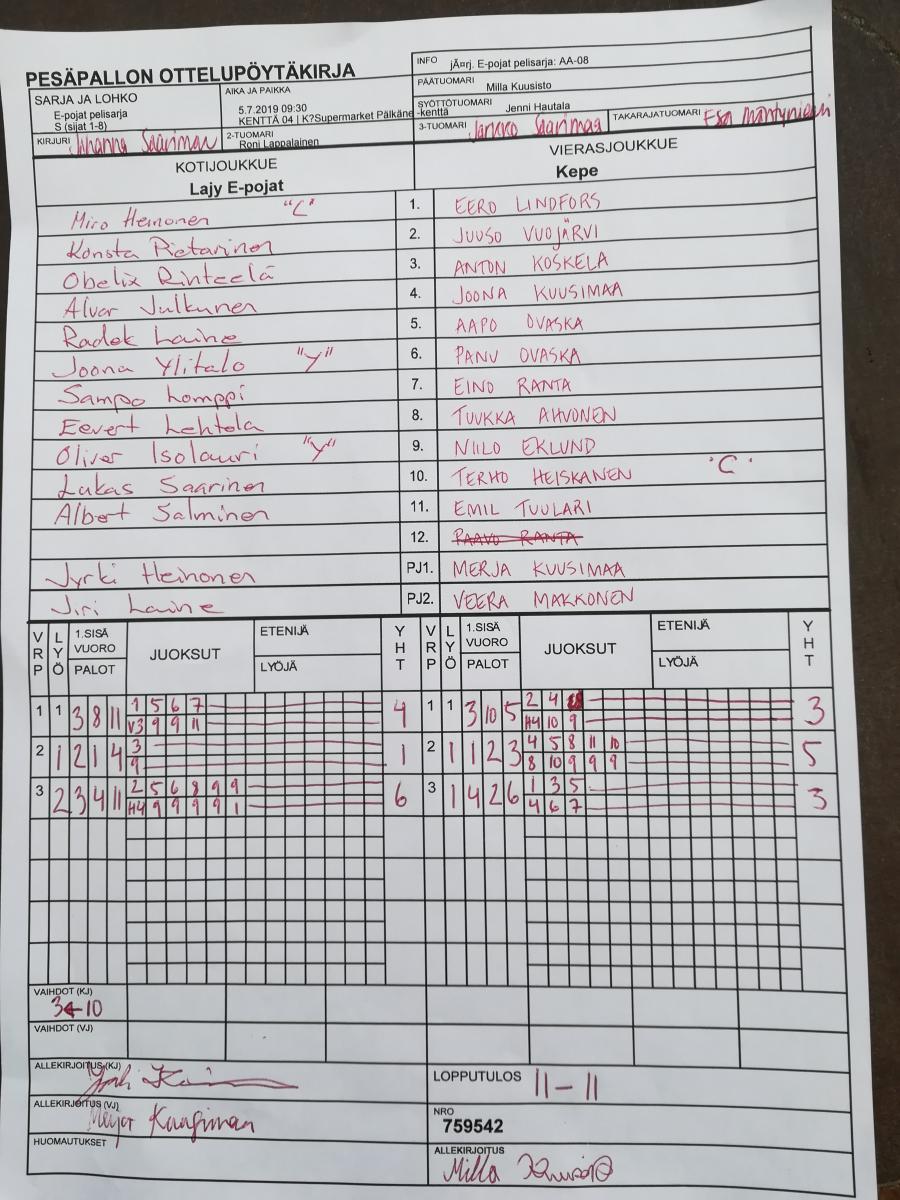 PESÄPALLON OTTELUPÖYTÄKIRJA
INFO jÃ¤rj. E-pojat pelisarja: AA-08
PÄÄTUOMARI Milla Kuusisto
SARJA JA LOHKO
E-pojat pelisarja
S (sijat 1-8)
AIKA JA PAIKKA
5.7.2019 09:30
KENTTÄ 04 | K?Supermarket Pälkäne -kenttä
SYÖTTÖTUOMARI Jenni Hautala
KIRJURI Johanna Saarimaa
2-TUOMARI Roni Lappalainen
3-TUOMARI Jarkko Saarimaa
TAKARAJATUOMARI Esa Mäntyniemi
KOTIJOUKKUE
Lajy E-pojat
VIERASJOUKKUE
Kepe
Miro Heinonen "C" 1. EERO LINDFORS
Konsta Pietarinen 2. JUUSO VUOJÄRVI
Obelix Rinteelä 3. ANTON KOSKELA
Alvar Julkunen 4. JOONA KUUSIMAA
Radek Laine 5. AAPO OVASKA
Joona Ylitalo "Y" 6. PANU OVASKA
Sampo Lomppi 7. EINO RANTA
Eevert Lehtola 8. TUUKKA AHVONEN
Oliver Isolauri "Y" 9. NIILO EKLUND
Lukas Saarinen 10. TERHO HEISKANEN "C"
Albert Salminen 11. EMIL TUULARI
12. PAAVO RANTA
Jyrki Heinonen PJ1. MERJA KUUSIMAA
Jiri Laine PJ2. VEERA MAKKONEN
VRP LYÖ 1.SISÄ VUORO PALOT JUOKSUT ETENIJÄ LYÖJÄ YHT VRP LYÖ 1.SISÄ VUORO PALOT JUOKSUT ETENIJÄ LYÖJÄ YHT
1 1 3 8 11 1 5 6 7 4 1 1 3 10 5 2 4 3
V3 9 9 11 H4 10 9
2 1 2 1 4 3 1 2 1 1 2 3 4 5 8 11 10 5
9 8 10 9 9 9
3 2 3 4 11 2 5 6 8 9 9 6 3 1 4 2 6 1 3 5 3
H4 9 9 9 9 1 4 6 7
VAIHDOT (KJ)
3←10
VAIHDOT (VJ)
ALLEKIRJOITUS (KJ)
LOPPUTULOS 11-11
ALLEKIRJOITUS (VJ)
NRO
759542
HUOMAUTUKSET
ALLEKIRJOITUS
Milla